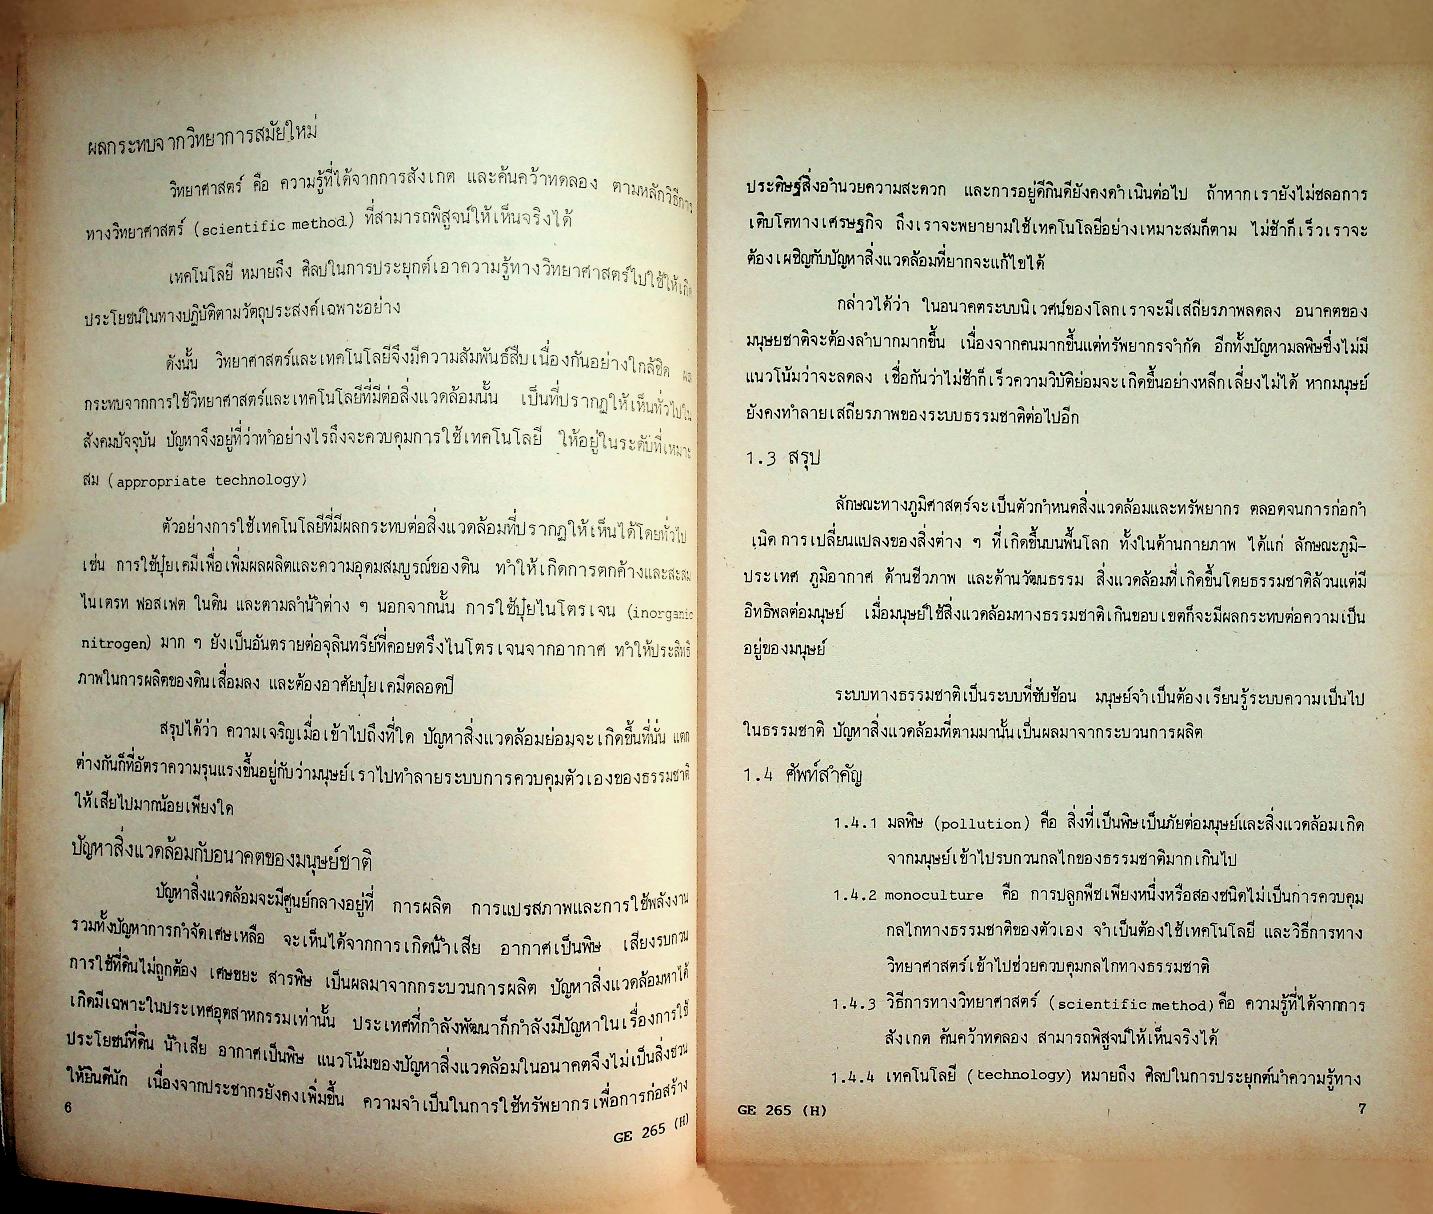 ผลกระทบจากวิทยาการสมัยใหม่
วิทยาศาสตร์ คือ ความรู้ที่ได้จากการสังเกต และค้นคว้าทดลอง ตามหลักวิธีการ
ทางวิทยาศาสตร์ (scientific method) ที่สามารถพิสูจน์ให้เห็นจริงได้
เทคโนโลยี หมายถึง ศิลปในการประยุกต์เอาความรู้ทางวิทยาศาสตร์ไปใช้ให้เกิด
ประโยชน์ในทางปฏิบัติตามวัตถุประสงค์เฉพาะอย่าง
ดังนั้น วิทยาศาสตร์และเทคโนโลยีจึงมีความสัมพันธ์สืบเนื่องกันอย่างใกล้ชิด ผล
กระทบจากการใช้วิทยาศาสตร์และเทคโนโลยีที่มีต่อสิ่งแวดล้อมนั้น เป็นที่ปรากฏให้เห็นทั่วไปใน
สังคมปัจจุบัน ปัญหาจึงอยู่ที่ว่าทำอย่างไรถึงจะควบคุมการใช้เทคโนโลยี ให้อยู่ในระดับที่เหมาะ
สม (appropriate technology)
ตัวอย่างการใช้เทคโนโลยีที่มีผลกระทบต่อสิ่งแวดล้อมที่ปรากฏให้เห็นได้โดยทั่วไป
เช่น การใช้ปุ๋ยเคมีเพื่อเพิ่มผลผลิตและความอุดมสมบูรณ์ของดิน ทำให้เกิดการตกค้างและสะสม
ไนเตรท ฟอสเฟต ในดิน และตามลำน้ำต่าง ๆ นอกจากนั้น การใช้ปุ๋ยไนโตรเจน (inorganic
nitrogen) มาก ๆ ยังเป็นอันตรายต่อจุลินทรีย์ที่คอยตรึงไนโตรเจนจากอากาศ ทำให้ประสิทธิ
ภาพในการผลิตของดินเสื่อมลง และต้องอาศัยปุ๋ยเคมีตลอดปี
สรุปได้ว่า ความเจริญเมื่อเข้าไปถึงที่ใด ปัญหาสิ่งแวดล้อมย่อมจะเกิดขึ้นที่นั่น แตก
ต่างกันก็ที่อัตราความรุนแรงขึ้นอยู่กับว่ามนุษย์เราไปทำลายระบบการควบคุมตัวเองของธรรมชาติ
ให้เสียไปมากน้อยเพียงใด
ปัญหาสิ่งแวดล้อมกับอนาคตของมนุษย์ชาติ
ปัญหาสิ่งแวดล้อมจะมีศูนย์กลางอยู่ที่ การผลิต การแปรสภาพและการใช้พลังงาน
รวมทั้งปัญหาการกำจัดเศษเหลือ จะเห็นได้จากการเกิดน้ำเสีย อากาศเป็นพิษ เสียงรบกวน
การใช้ที่ดินไม่ถูกต้อง เศษขยะ สารพิษ เป็นผลมาจากกระบวนการผลิต ปัญหาสิ่งแวดล้อมหาได้
เกิดมีเฉพาะในประเทศอุตสาหกรรมเท่านั้น ประเทศที่กำลังพัฒนาก็กำลังมีปัญหาในเรื่องการใช้
ประโยชน์ที่ดิน น้ำเสีย อากาศเป็นพิษ แนวโน้มของปัญหาสิ่งแวดล้อมในอนาคตจึงไม่เป็นสิ่งชวน
ให้ยินดีนัก เนื่องจากประชากรยังคงเพิ่มขึ้น ความจำเป็นในการใช้ทรัพยากรเพื่อการก่อสร้าง
6
GE 265 (H)
ประดิษฐ์สิ่งอำนวยความสะดวก และการอยู่ดีกินดียังคงดำเนินต่อไป ถ้าหากเรายังไม่ชลอการ
เติบโตทางเศรษฐกิจ ถึงเราจะพยายามใช้เทคโนโลยีอย่างเหมาะสมก็ตาม ไม่ช้าก็เร็วเราจะ
ต้องเผชิญกับปัญหาสิ่งแวดล้อมที่ยากจะแก้ไขได้
กล่าวได้ว่า ในอนาคตระบบนิเวศน์ของโลกเราจะมีเสถียรภาพลดลง อนาคตของ
มนุษยชาติจะต้องลำบากมากขึ้น เนื่องจากคนมากขึ้นแต่ทรัพยากรจำกัด อีกทั้งปัญหามลพิษซึ่งไม่มี
แนวโน้มว่าจะลดลง เชื่อกันว่าไม่ช้าก็เร็วความวิบัติย่อมจะเกิดขึ้นอย่างหลีกเลี่ยงไม่ได้ หากมนุษย์
ยังคงทำลายเสถียรภาพของระบบธรรมชาติต่อไปอีก
1.3 สรุป
ลักษณะทางภูมิศาสตร์จะเป็นตัวกำหนดสิ่งแวดล้อมและทรัพยากร ตลอดจนการก่อกำ
เนิด การเปลี่ยนแปลงของสิ่งต่าง ๆ ที่เกิดขึ้นบนพื้นโลก ทั้งในด้านกายภาพ ได้แก่ ลักษณะภูมิ-
ประเทศ ภูมิอากาศ ด้านชีวภาพ และด้านวัฒนธรรม สิ่งแวดล้อมที่เกิดขึ้นโดยธรรมชาติล้วนแต่มี
อิทธิพลต่อมนุษย์ เมื่อมนุษย์ใช้สิ่งแวดล้อมทางธรรมชาติเกินขอบเขตก็จะมีผลกระทบต่อความเป็น
อยู่ของมนุษย์
ระบบทางธรรมชาติเป็นระบบที่ซับซ้อน มนุษย์จำเป็นต้องเรียนรู้ระบบความเป็นไป
ในธรรมชาติ ปัญหาสิ่งแวดล้อมที่ตามมานั้นเป็นผลมาจากระบวนการผลิต
1.4 ศัพท์สำคัญ
1.4.1 มลพิษ (pollution) คือ สิ่งที่เป็นพิษเป็นภัยต่อมนุษย์และสิ่งแวดล้อมเกิด
จากมนุษย์เข้าไปรบกวนกลไกของธรรมชาติมากเกินไป
1.4.2 monoculture คือ การปลูกพืชเพียงหนึ่งหรือสองชนิดไม่เป็นการควบคุม
กลไกทางธรรมชาติของตัวเอง จำเป็นต้องใช้เทคโนโลยี และวิธีการทาง
วิทยาศาสตร์เข้าไปช่วยควบคุมกลไกทางธรรมชาติ
1.4.3 วิธีการทางวิทยาศาสตร์ (scientific method) คือ ความรู้ที่ได้จากการ
สังเกต ค้นคว้าทดลอง สามารถพิสูจน์ให้เห็นจริงได้
1.4.4 เทคโนโลยี (technology) หมายถึง ศิลปในการประยุกต์นำความรู้ทาง
GE 265 (H)
7